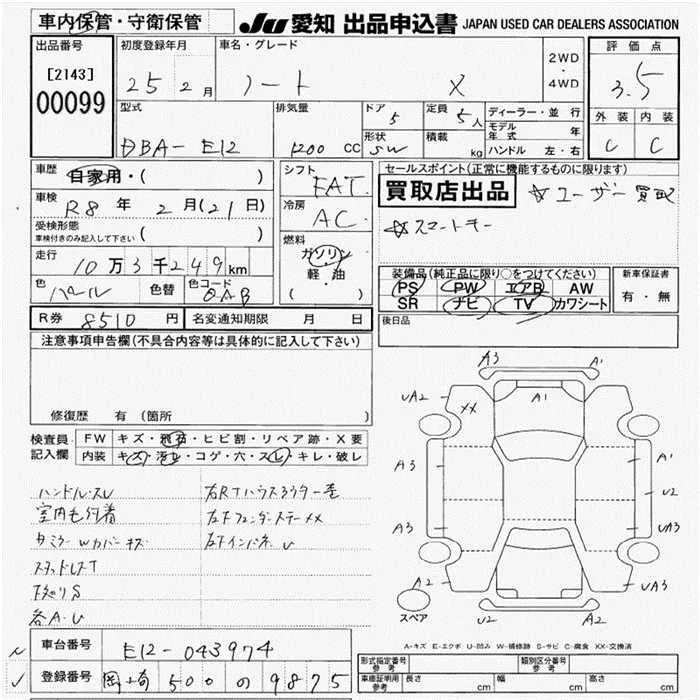 車内保管・守衛保管 JU 愛知 出品申込書 JAPAN USED CAR DEALERS ASSOCIATION
出品番号 初度登録年月 車名・グレード 2WD・4WD 評価点
[2143]
00099
25 2月 ノート X 3.5
型式 排気量 ドア 5 定員 5人 ディーラー・並行 外装 内装
DBA-E12 1200 CC 形状 SW 積載 kg モデル年式 年 C C
ハンドル 左・右
車歴 自家用・( ) シフト FAT セールスポイント(正常に機能するものに限ります)
車検 R8年 2月(21日) 冷房 AC 買取店出品 ☆ユーザー買取
受検形態 車検付きのみ記入して下さい ( ) ☆スマートキー
走行 10万3千249km 燃料 ガソリン・軽油 ( )
装備品(純正品に限り○をつけてください) 新車保証書
色 パール 色替 色コード QAB PS PW エアB AW 有・無
SR ナビ TV カワシート
R券 8510円 名変通知期限 月 日 後日品
注意事項申告欄(不具合内容等は具体的に記入して下さい)
修復歴 有(箇所
検査員記入欄 FW キズ・飛石・ヒビ割・リペア跡・X要
内装 キズ・汚レ・コゲ・穴・スレ・キレ・破レ
ハンドルスレ
室内毛付着
スタッドレスT
下廻りS
各A・U
A3 A1
UA2 XX A1
A3 A1
U2
A3 UA3
A2 UA3
スペア U2 A2
A-キズ E-エクボ U-凹み W-補修跡 S-サビ C-腐食 XX-交換済
車台番号 E12-043974
登録番号 岡崎 500 の 9875
形式指定番号 参考 類別区分番号 参考
車庫証明用 参考 長さ cm 幅 cm 高さ cm